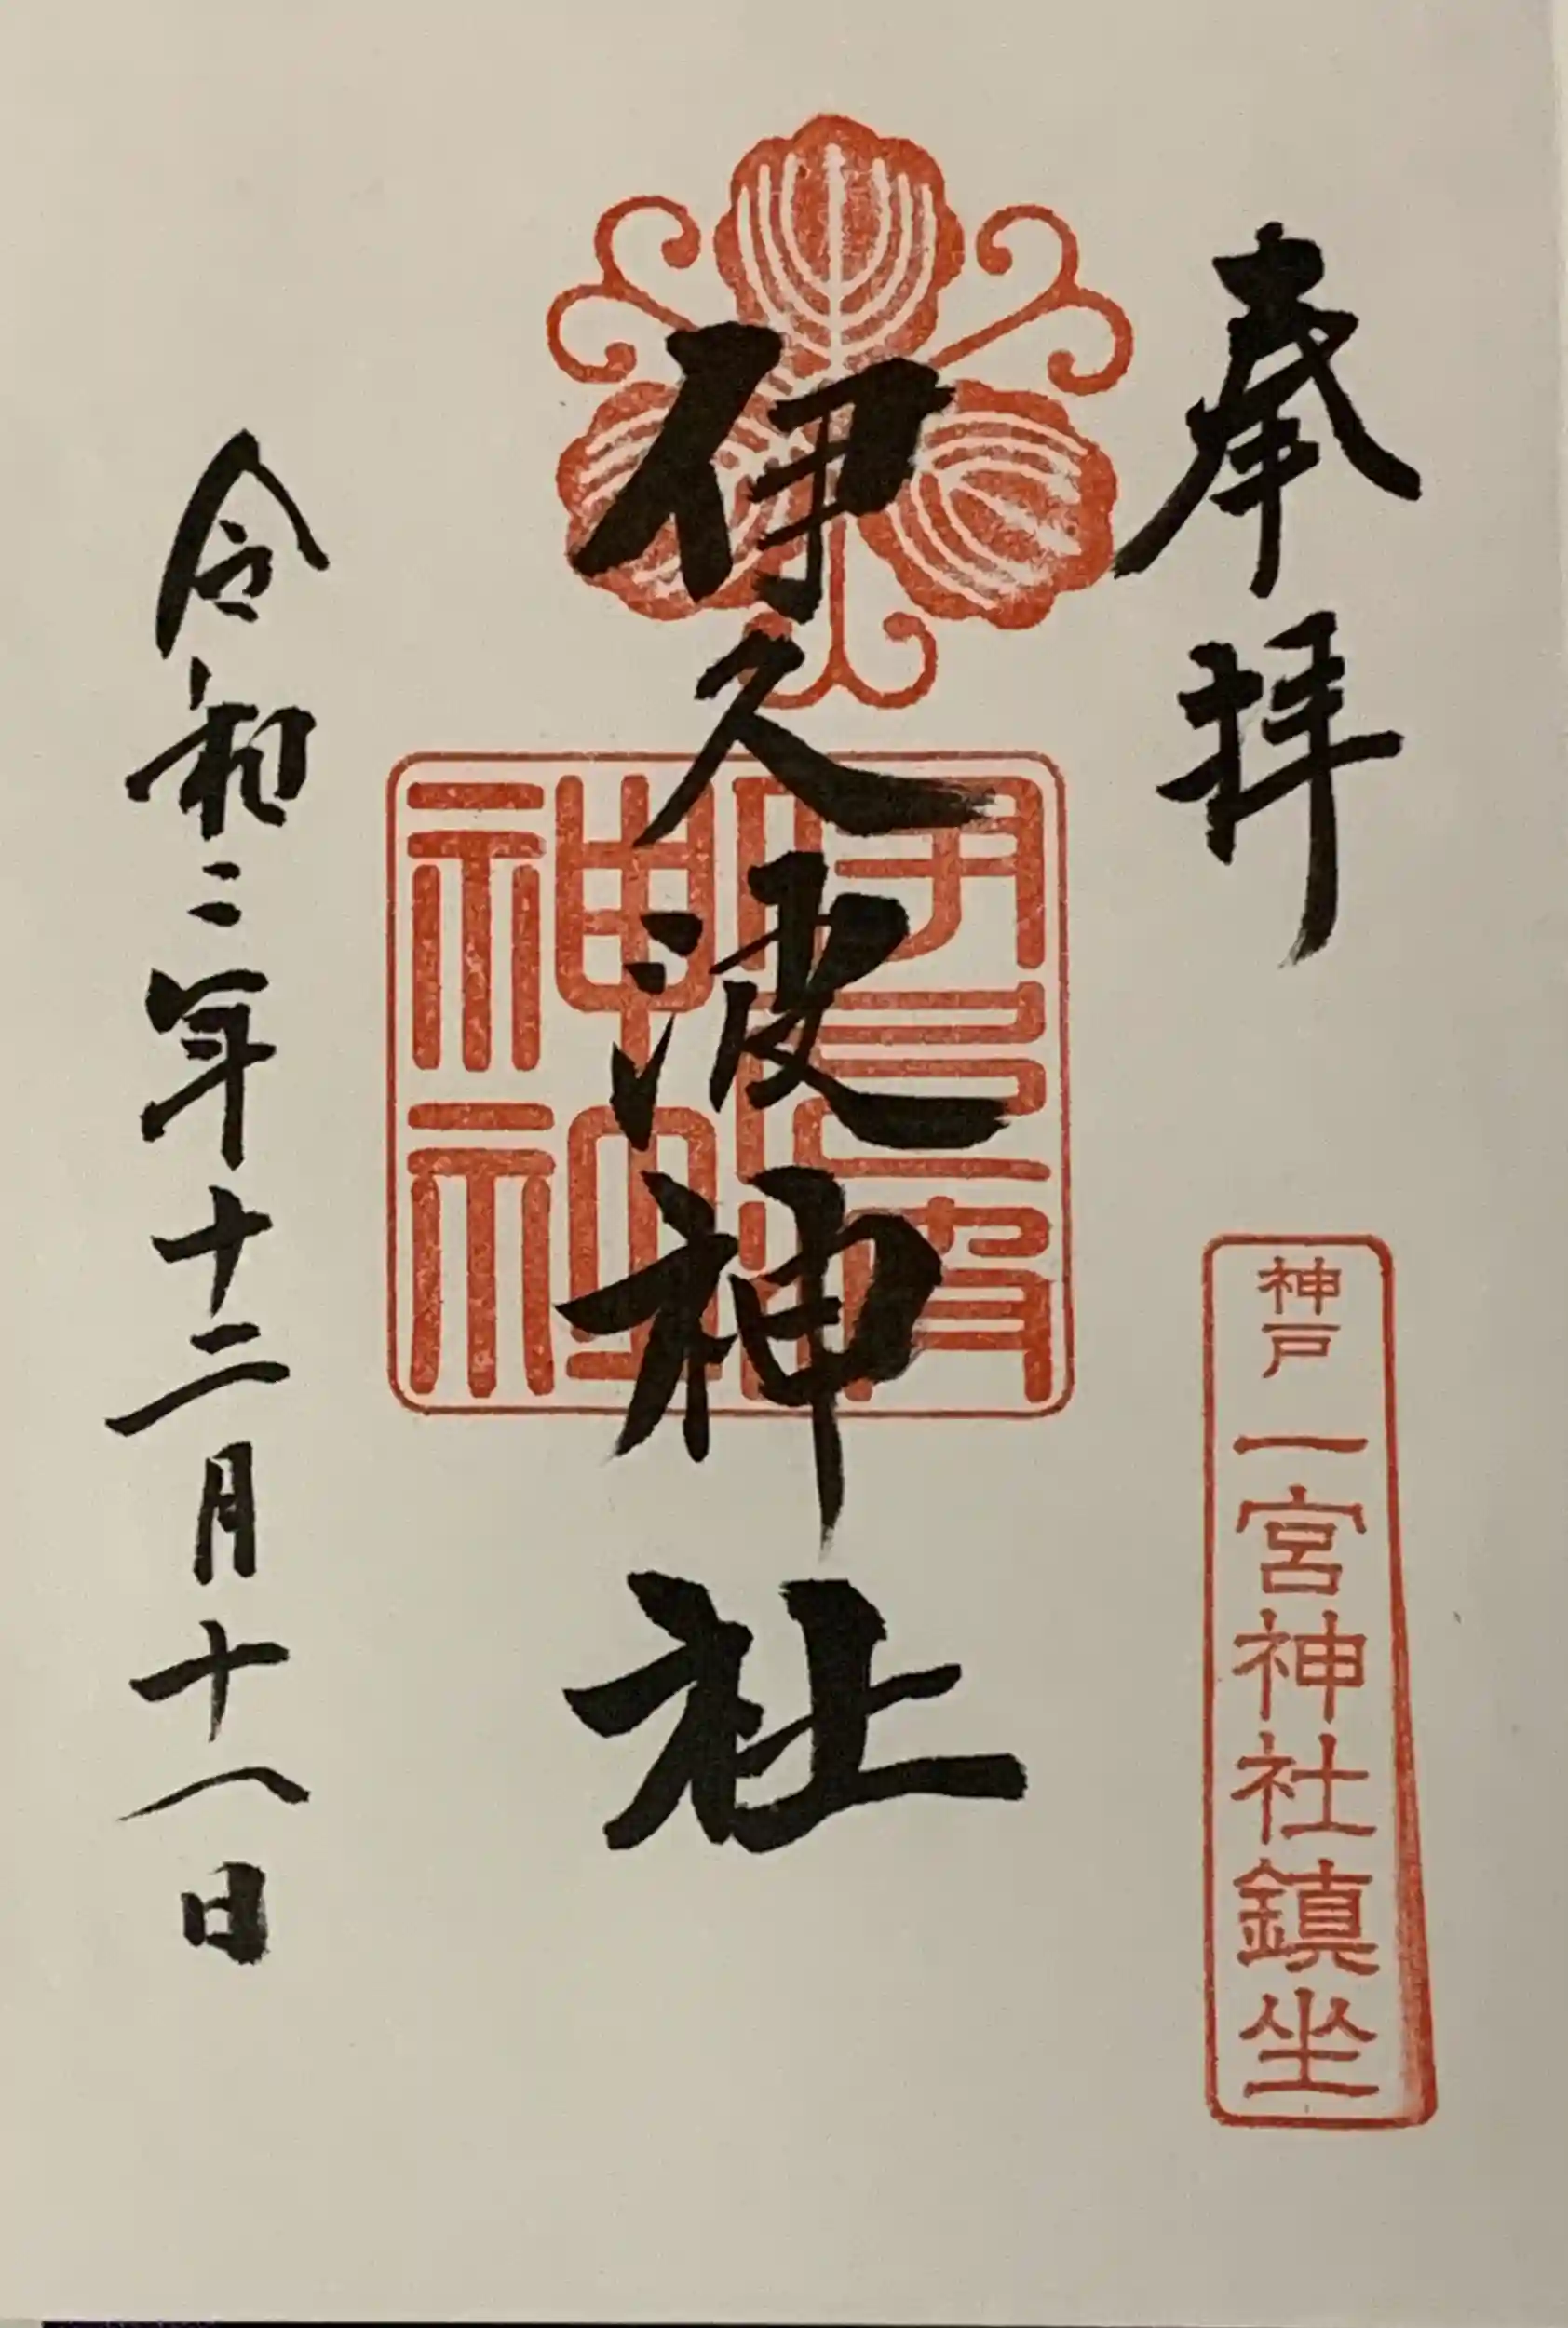 奉拝
神戸 一宮神社鎮坐
伊久波神社
令和二年十二月十八日